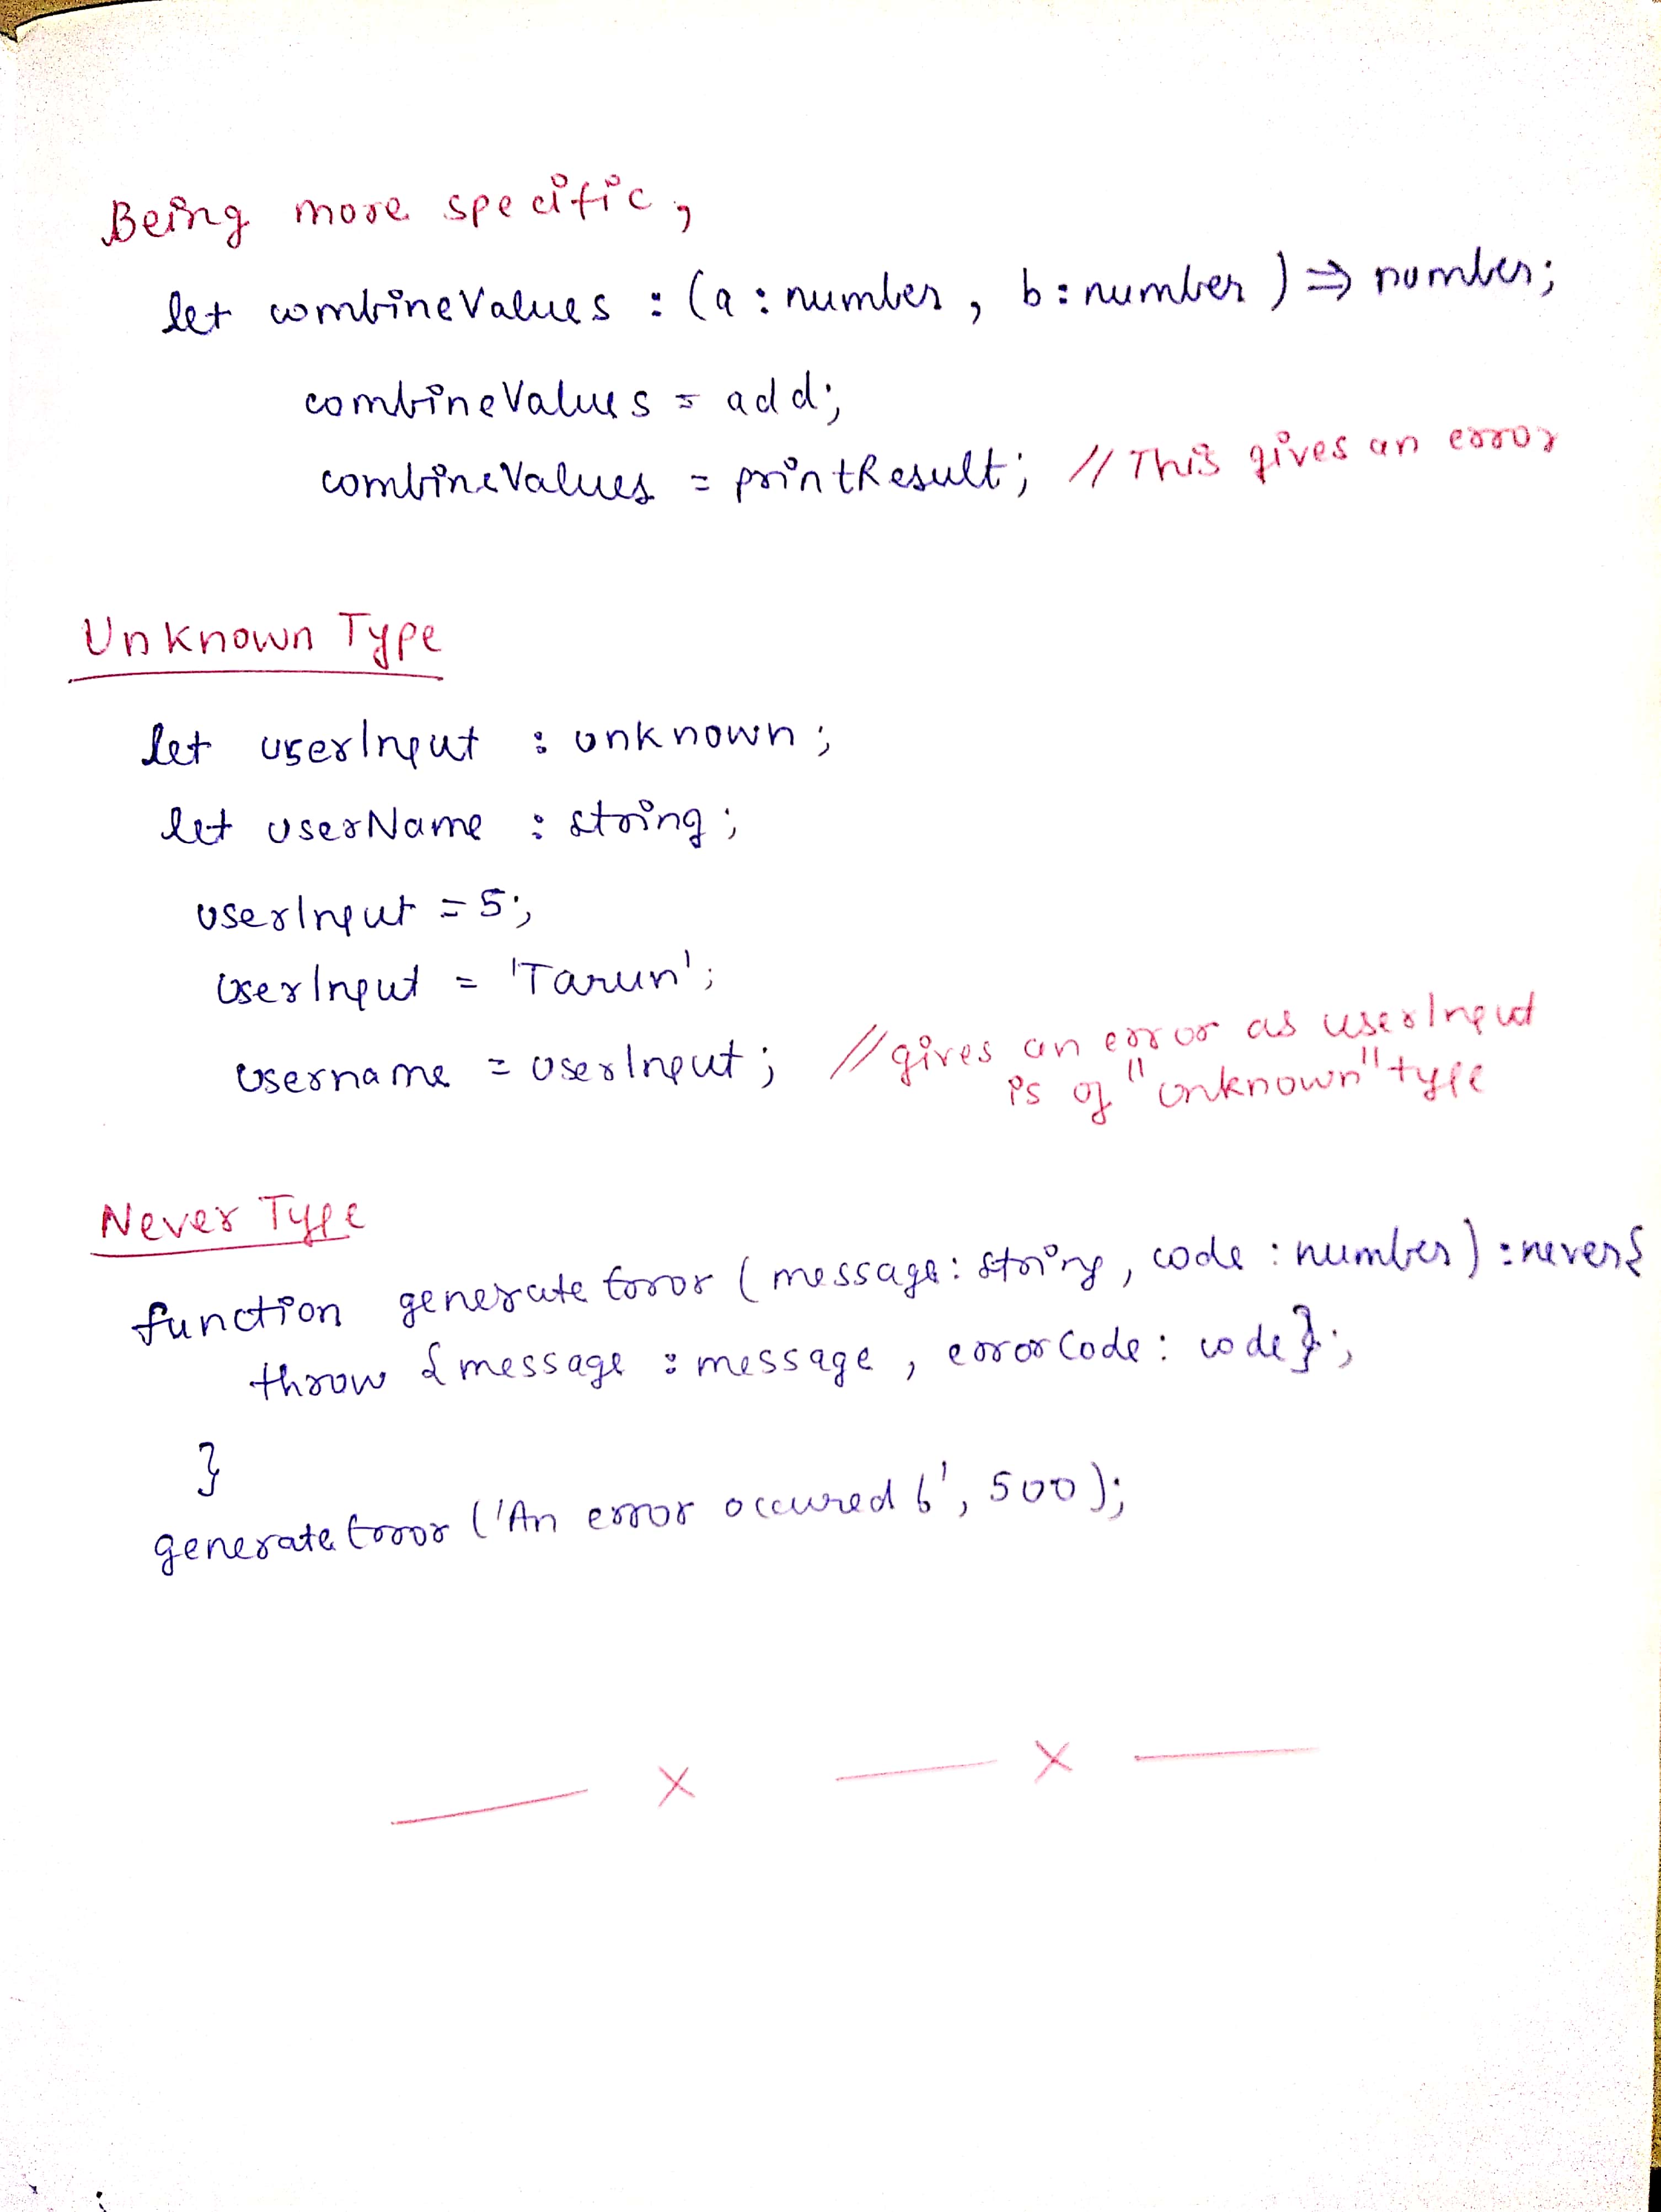 Being more specific,
let combineValues : (a : number, b : number) => number;
combineValues = add;
combineValues = printResult; // This gives an error
Unknown Type
let userInput : unknown;
let userName : string;
userInput = 5;
userInput = 'Tarun';
username = userInput; // gives an error as userInput
is of "unknown" type
Never Type
function generateError (message: string, code : number) : never{
throw {message : message, errorCode : code};
}
generateError ('An error occured', 500);
x x